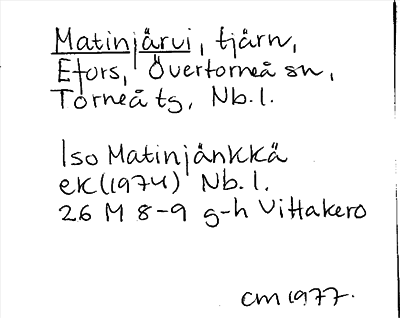 Matinjärvi, tjärn,
Efors, Övertorneå sn,
Torneå tg, Nb.l.
Iso Matinjänkkä
ek(1974) Nb.l.
26 M 8-9 g-h Vittakero
CM 1977.